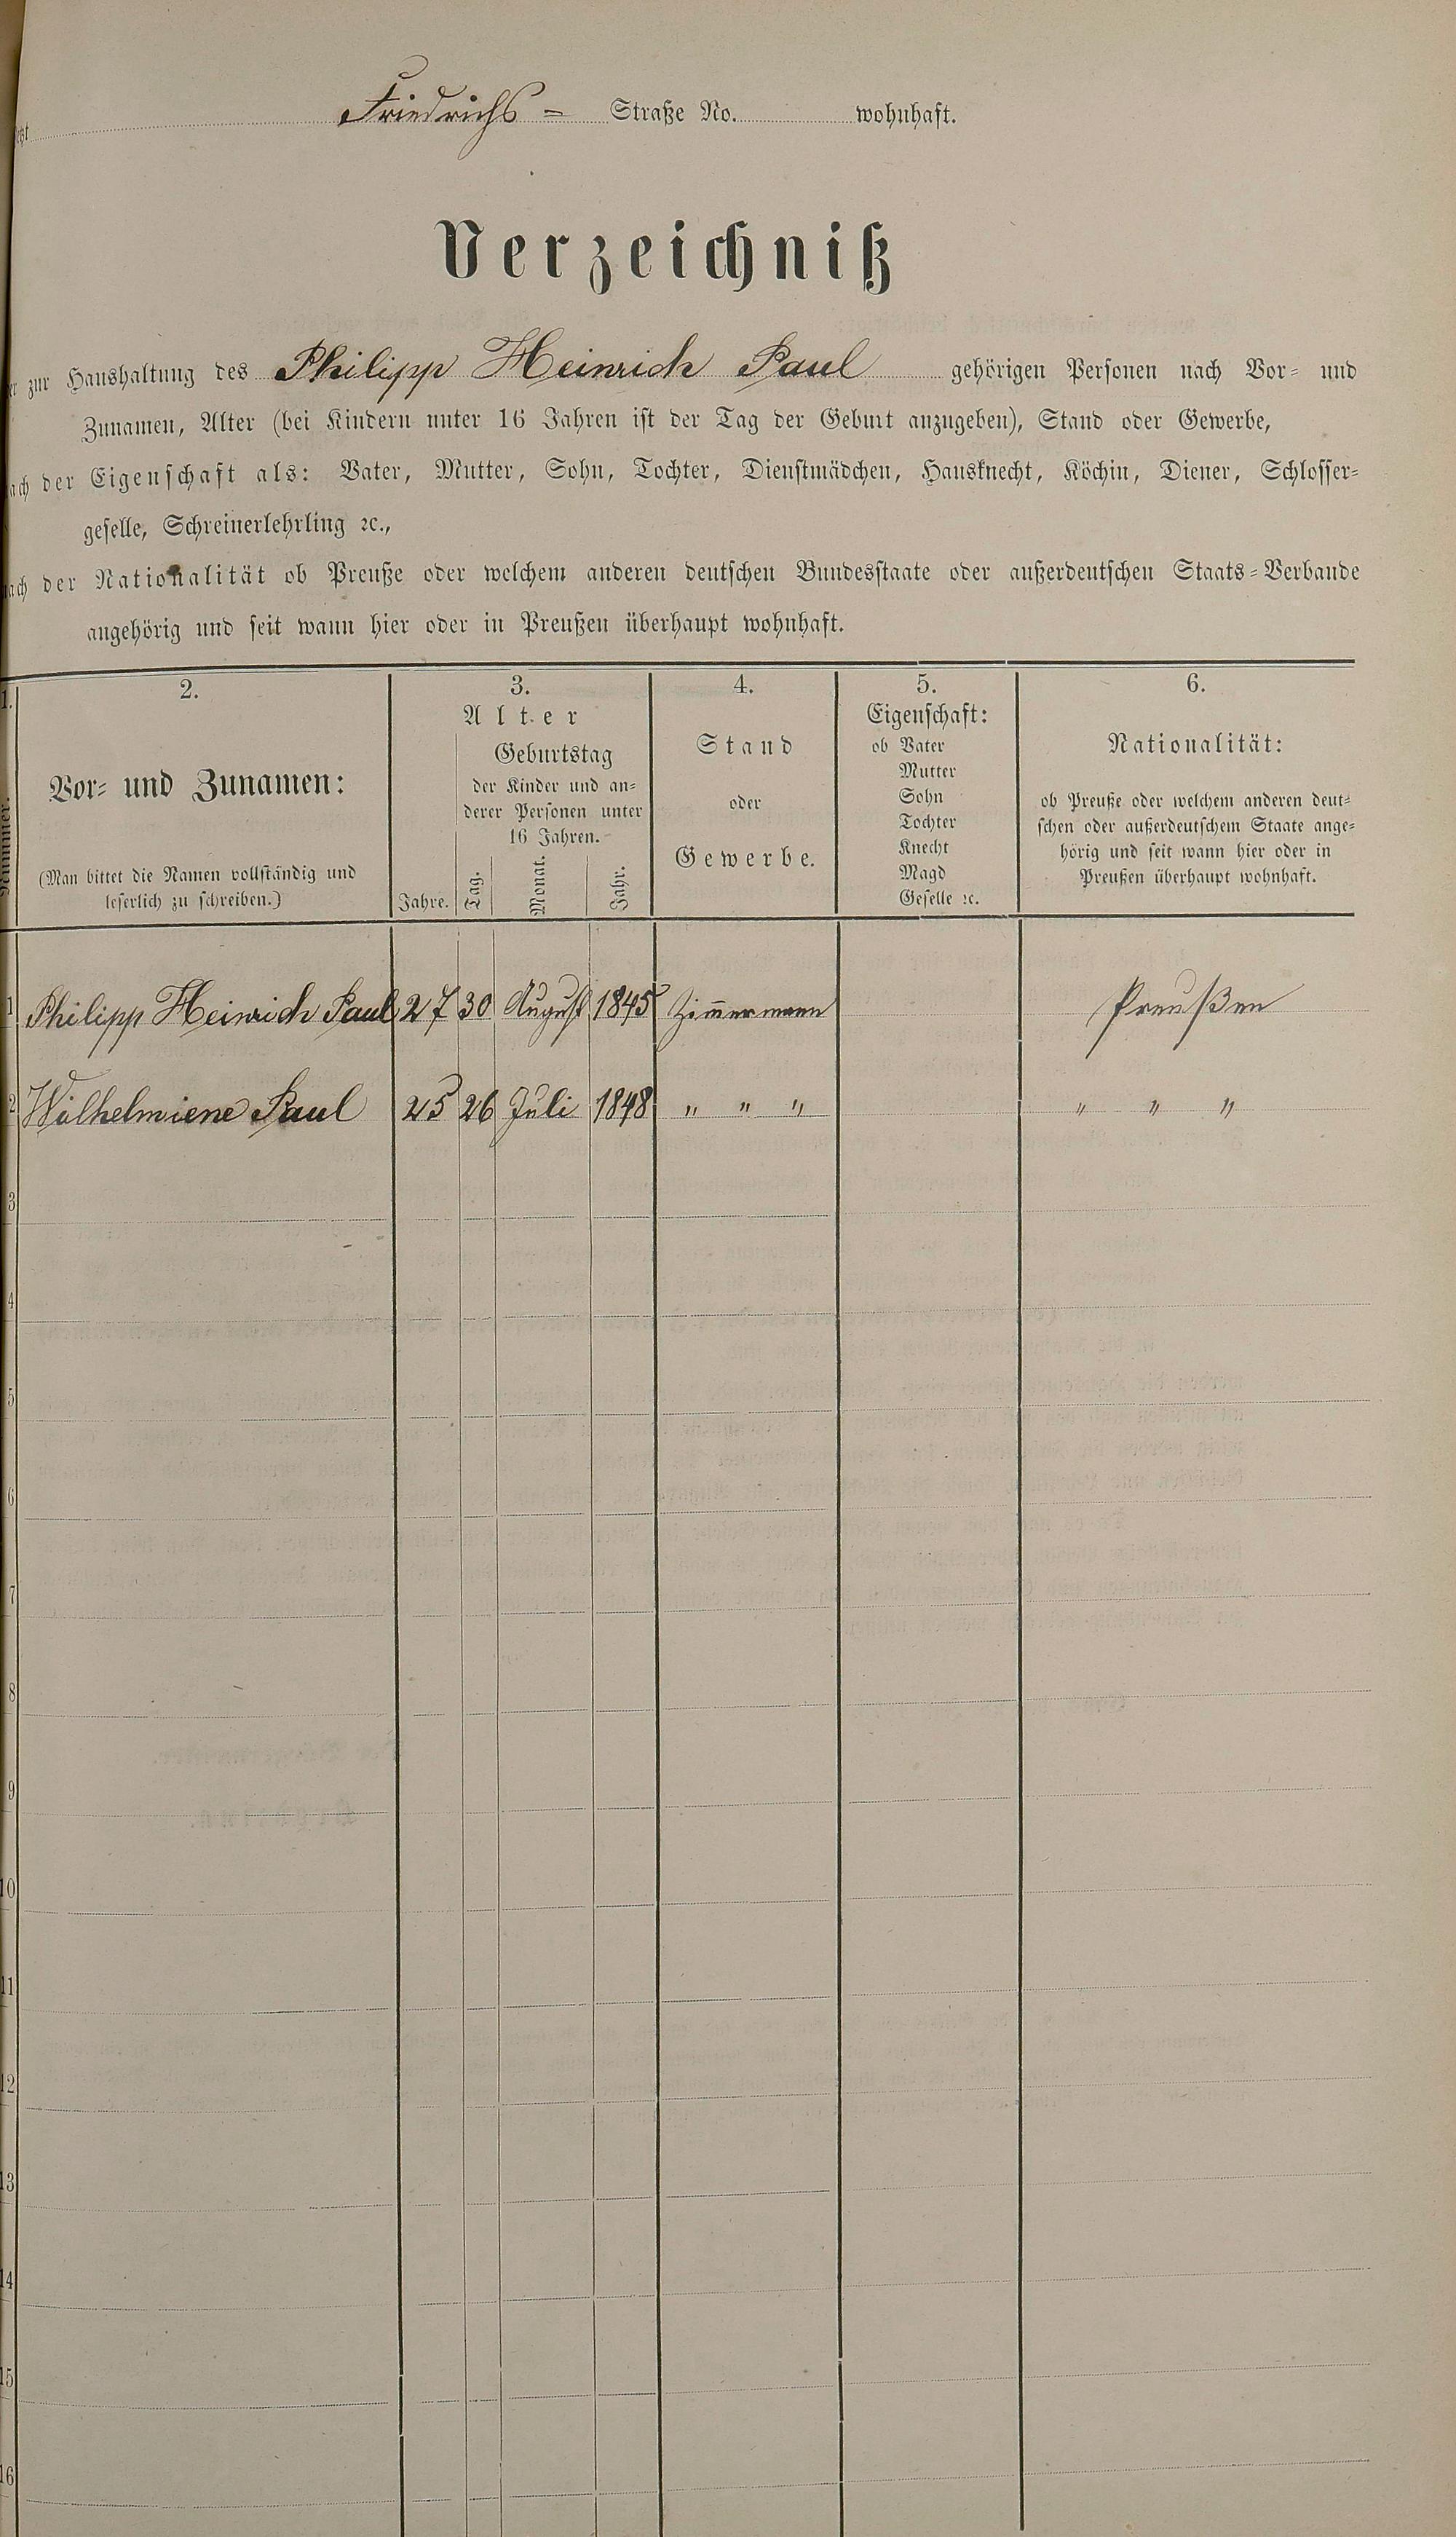 Friedrichs = Straße No. wohnhaft.
Verzeichniß
zur Haushaltung des Philipp Heinrich Paul gehörigen Personen nach Vor- und
Zunamen, Alter (bei Kindern unter 16 Jahren ist der Tag der Geburt anzugeben), Stand oder Gewerbe,
nach der Eigenschaft als: Vater, Mutter, Sohn, Tochter, Dienstmädchen, Hausknecht, Köchin, Diener, Schlosser-
geselle, Schreinerlehrling ꝛc.,
nach der Nationalität ob Preuße oder welchem anderen deutschen Bundesstaate oder außerdeutschen Staats-Verbande
angehörig und seit wann hier oder in Preußen überhaupt wohnhaft.
1.
Nummer.
2.
Vor- und Zunamen:
(Man bittet die Namen vollständig und
leserlich zu schreiben.)
3.
Alter
Geburtstag
der Kinder und an-
derer Personen unter
16 Jahren.
Jahre. Tag. Monat. Jahr.
4.
Stand
oder
Gewerbe.
5.
Eigenschaft:
ob Vater
Mutter
Sohn
Tochter
Knecht
Magd
Geselle ꝛc.
6.
Nationalität:
ob Preuße oder welchem anderen deut-
schen oder außerdeutschem Staate ange-
hörig und seit wann hier oder in
Preußen überhaupt wohnhaft.
1 Philipp Heinrich Paul 27 30 August 1845 Zim̄ermann Preußen
2 Wilhelmiene Paul 25 26 Juli 1848 " " " " " "
3
4
5
6
7
8
9
10
11
12
13
14
15
16